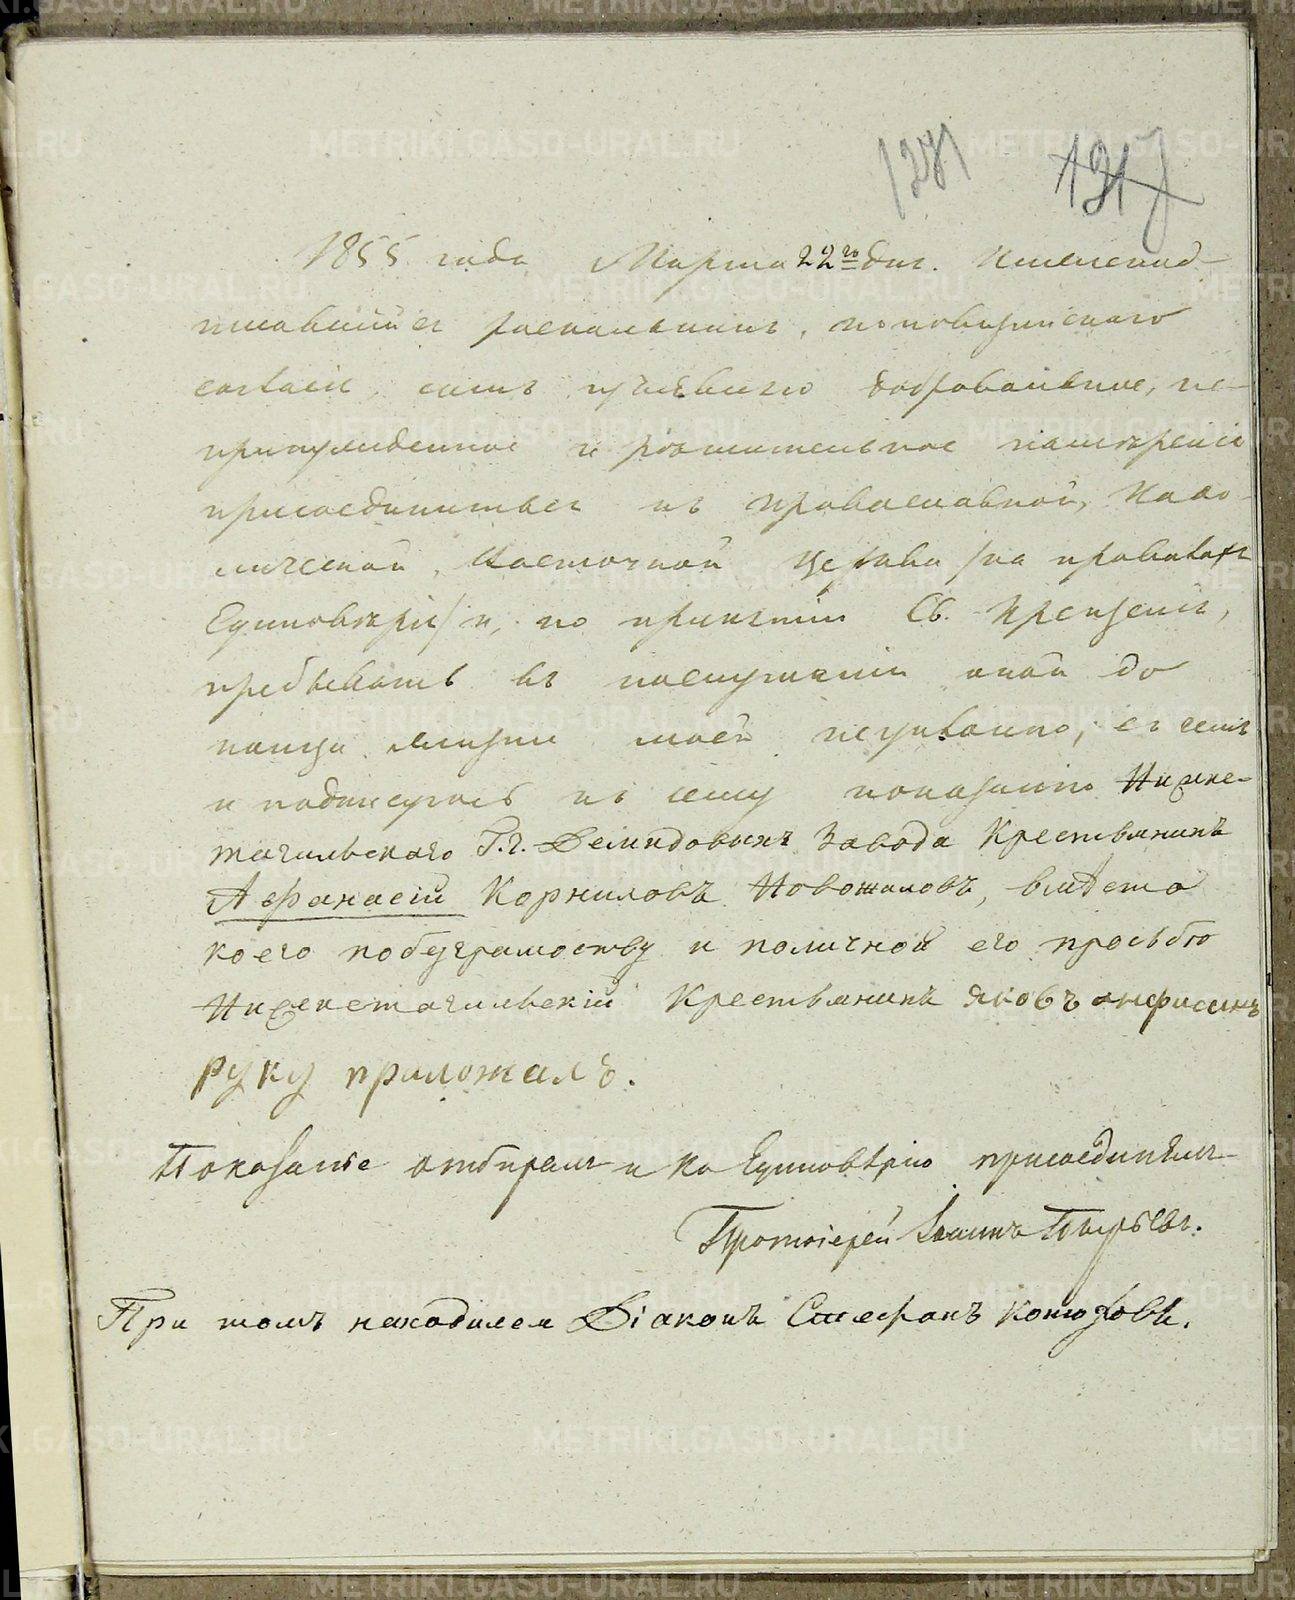 1855 года Марта 22го дня. Нижепод-
писавшийся раскольникъ, поповщинскаго
согласія, симъ изъявляю добровольное, не-
принужденное и рѣшительное намѣреніе
присоединиться къ православной, Каѳо-
лической, Восточной Церкви /на правилахъ
Единовѣрія/ и, по принятіи Св. Крещенія,
пребывать въ послушаніи оной до
конца жизни моей неизмѣнно, въ чемъ
и подписуюсь къ сему показанію Нижне-
тагильскаго Г.г. Демидовыхъ Завода Крестьянинъ
Афанасій Корниловъ Новожиловъ, вмѣсто
коего побезграмоству и поличной его прозьбѣ
Нижнетагильскій Крестьянинъ Яковъ анфисинъ
руку приложалъ.
Показаніе отбиралъ и къ Единовѣрію присоединялъ
Протоіерей Іоаннъ Пырьевъ.
При томъ находился Діаконъ Стефанъ Конюховъ.